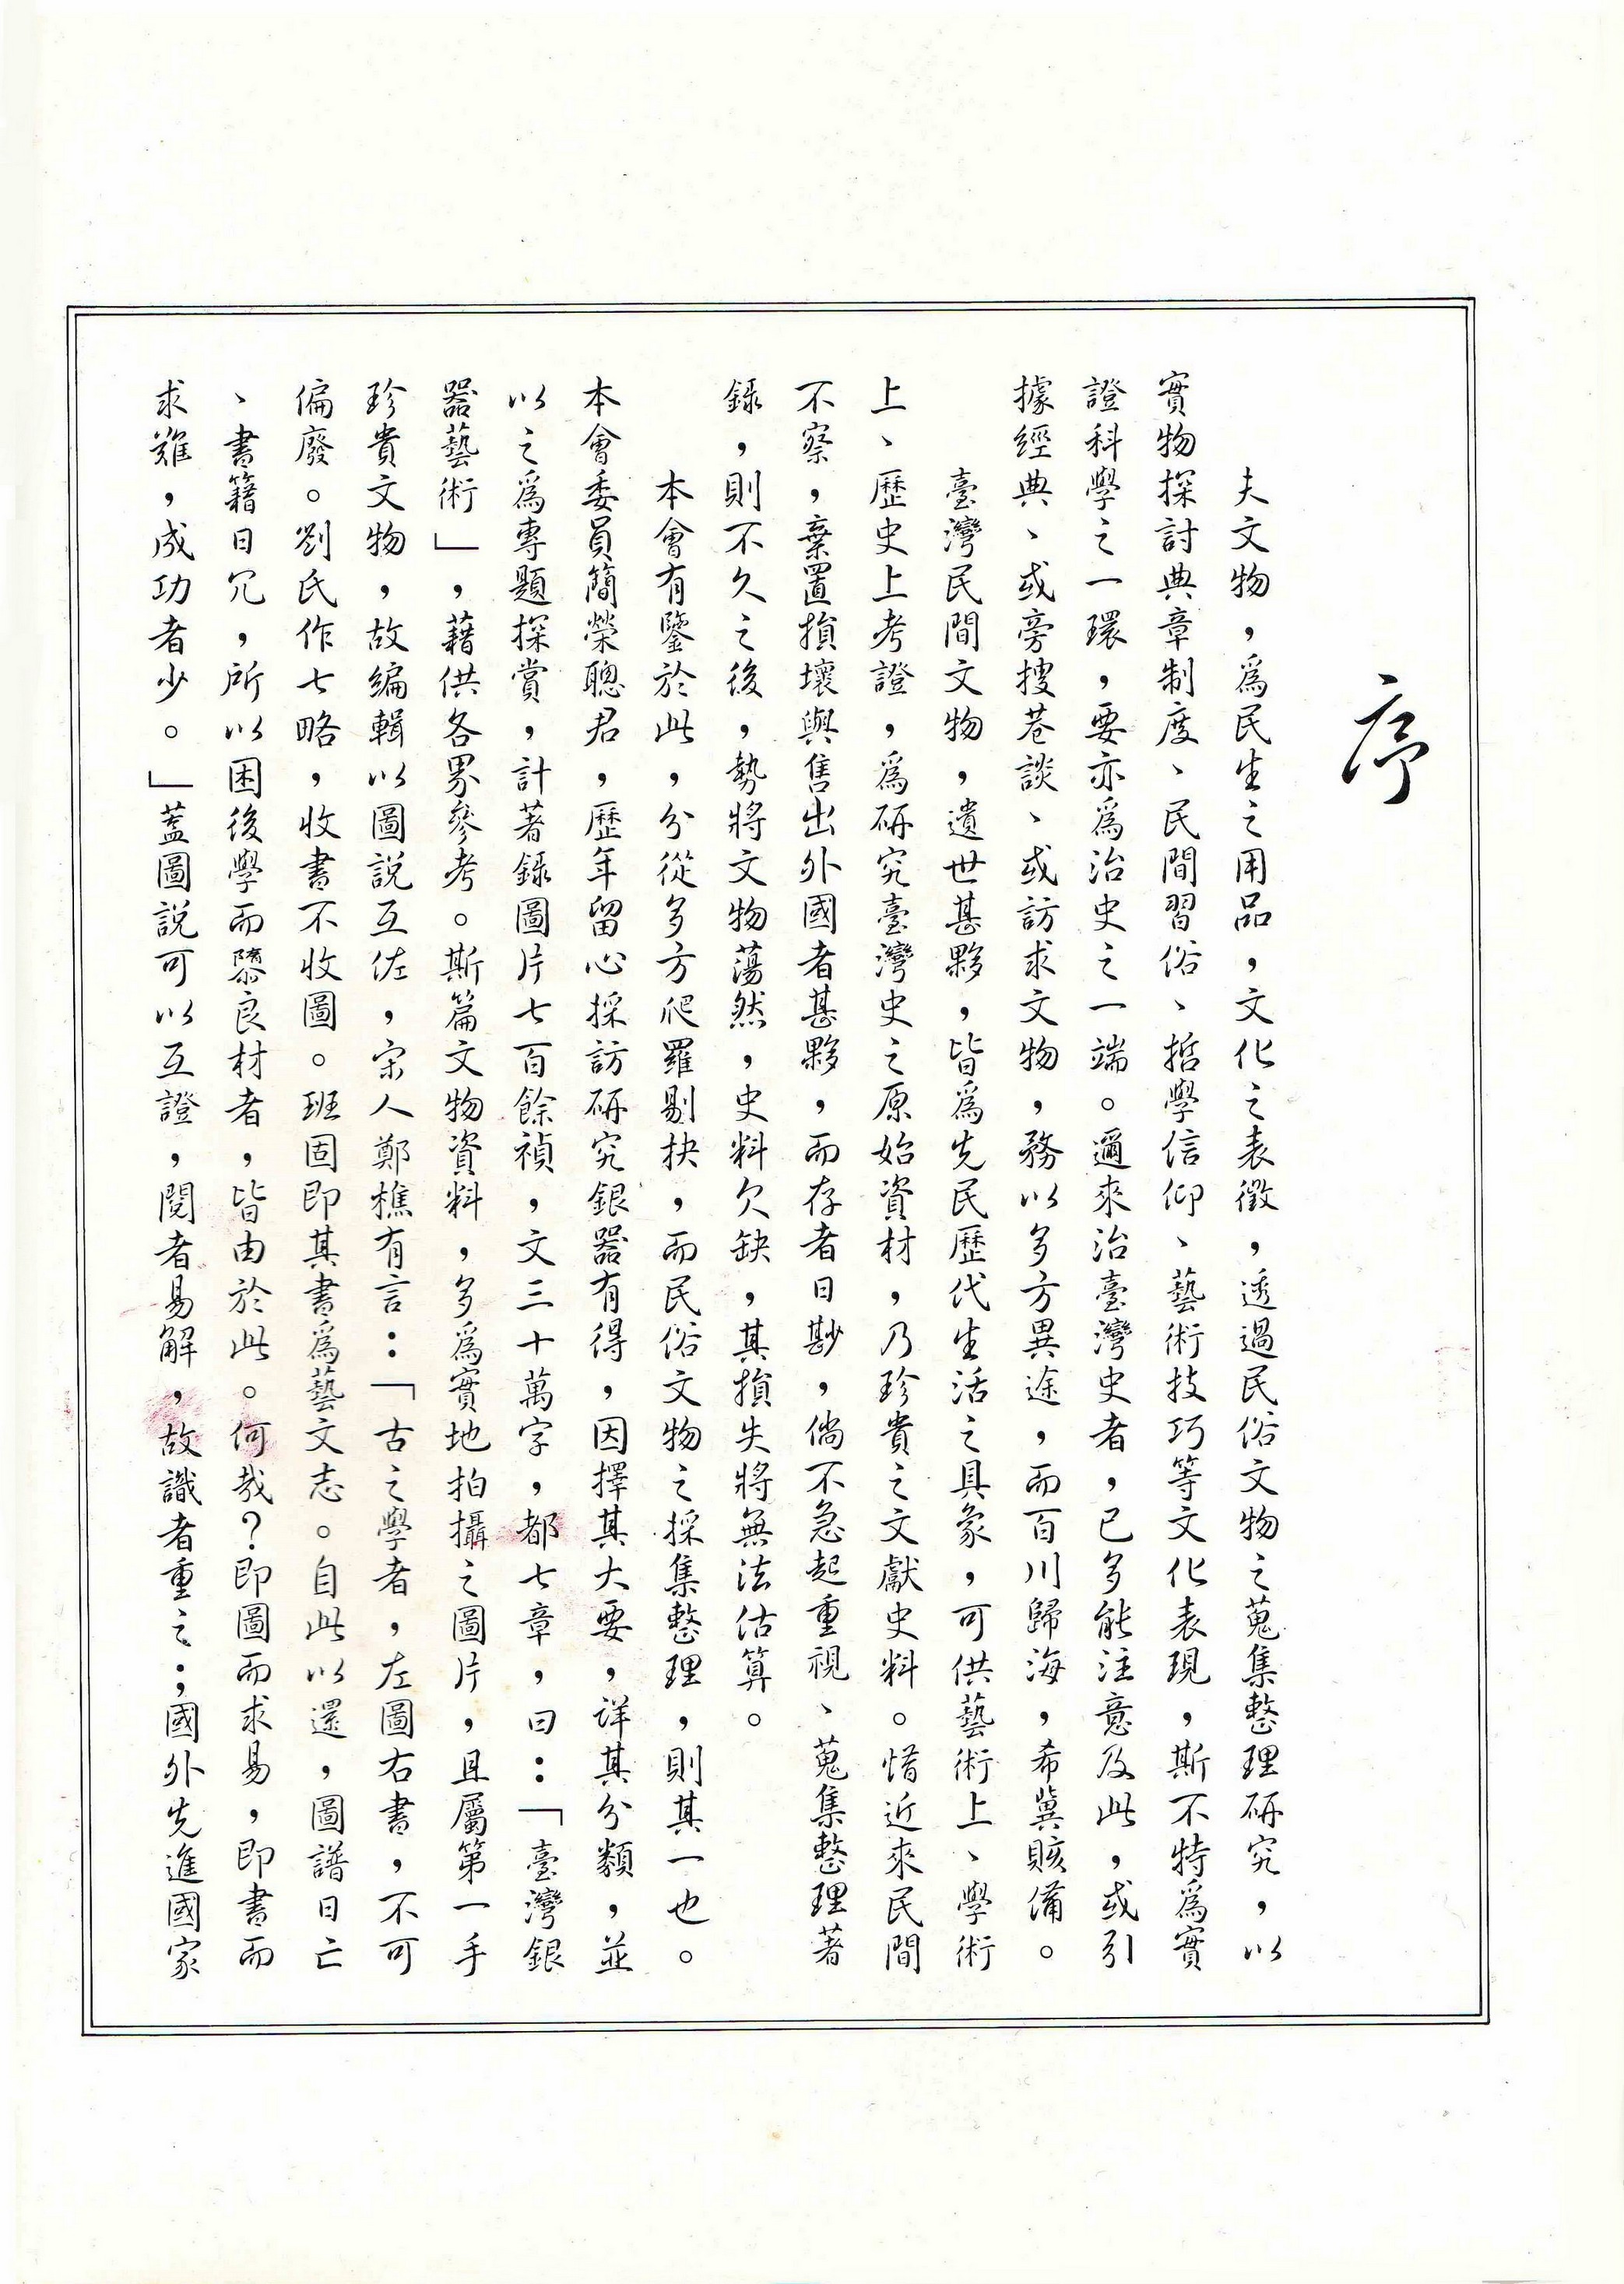 序
夫文物，爲民生之用品，文化之表徵，透過民俗文物之蒐集整理研究，以
實物探討典章制度、民間習俗、哲學信仰、藝術技巧等文化表現，斯不特爲實
證科學之一環，要亦爲治史之一端。邇來治臺灣史者，已多能注意及此，或引
據經典、或旁搜巷談、或訪求文物，務以多方異途，而百川歸海，希冀賅備。
臺灣民間文物，遺世甚夥，皆爲先民歷代生活之具象，可供藝術上、學術
上、歷史上考證，爲研究臺灣史之原始資材，乃珍貴之文獻史料。惜近來民間
不察，棄置損壞與售出外國者甚夥，而存者日尠，倘不急起重視、蒐集整理著
錄，則不久之後，勢將文物蕩然，史料欠缺，其損失將無法估算。
本會有鑒於此，分從多方爬羅剔抉，而民俗文物之採集整理，則其一也。
本會委員簡榮聰君，歷年留心採訪研究銀器有得，因擇其大要，詳其分類，並
以之爲專題探賞，計著錄圖片七百餘禎，文三十萬字，都七章，曰：「臺灣銀
器藝術」，藉供各界參考。斯篇文物資料，多爲實地拍攝之圖片，且屬第一手
珍貴文物，故編輯以圖說互佐，宋人鄭樵有言：「古之學者，左圖右書，不可
偏廢。劉氏作七略，收書不收圖。班固即其書爲藝文志。自此以還，圖譜日亡
、書籍日冗，所以困後學而隳良材者，皆由於此。何哉？即圖而求易，即書而
求難，成功者少。」蓋圖說可以互證，閱者易解，故識者重之；國外先進國家